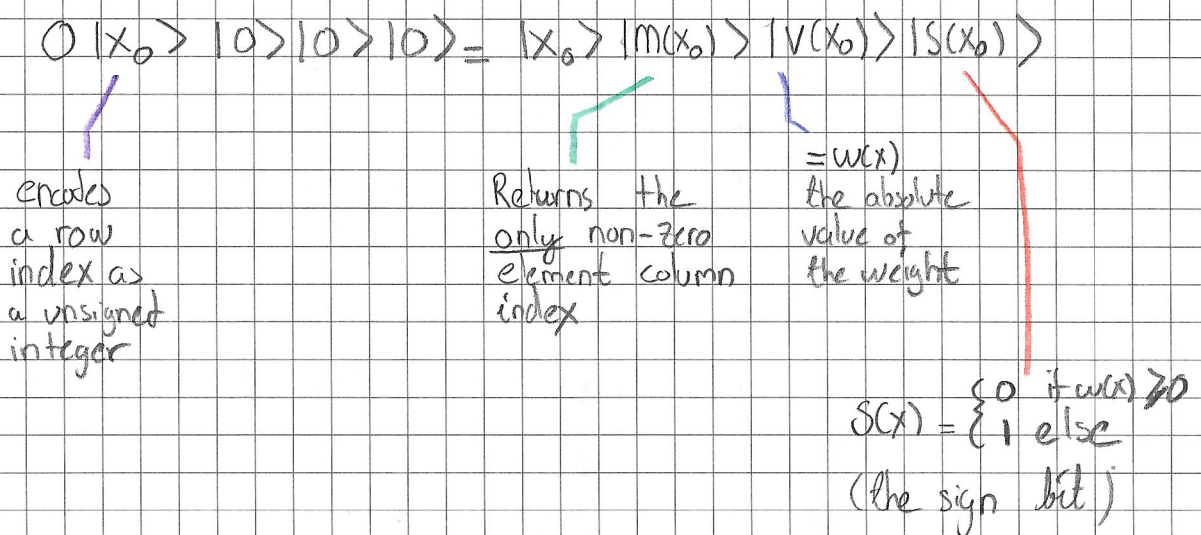 O |x₀> |0>|0>|0> = |x₀> |m(x₀)> |V(x₀)> |S(x₀)>
encodes
a row
index as
a unsigned
integer
Returns the
only non-zero
element column
index
=w(x)
the absolute
value of
the weight
S(x) = { 0 if w(x) ⩾0
{ 1 else
(the sign bit)